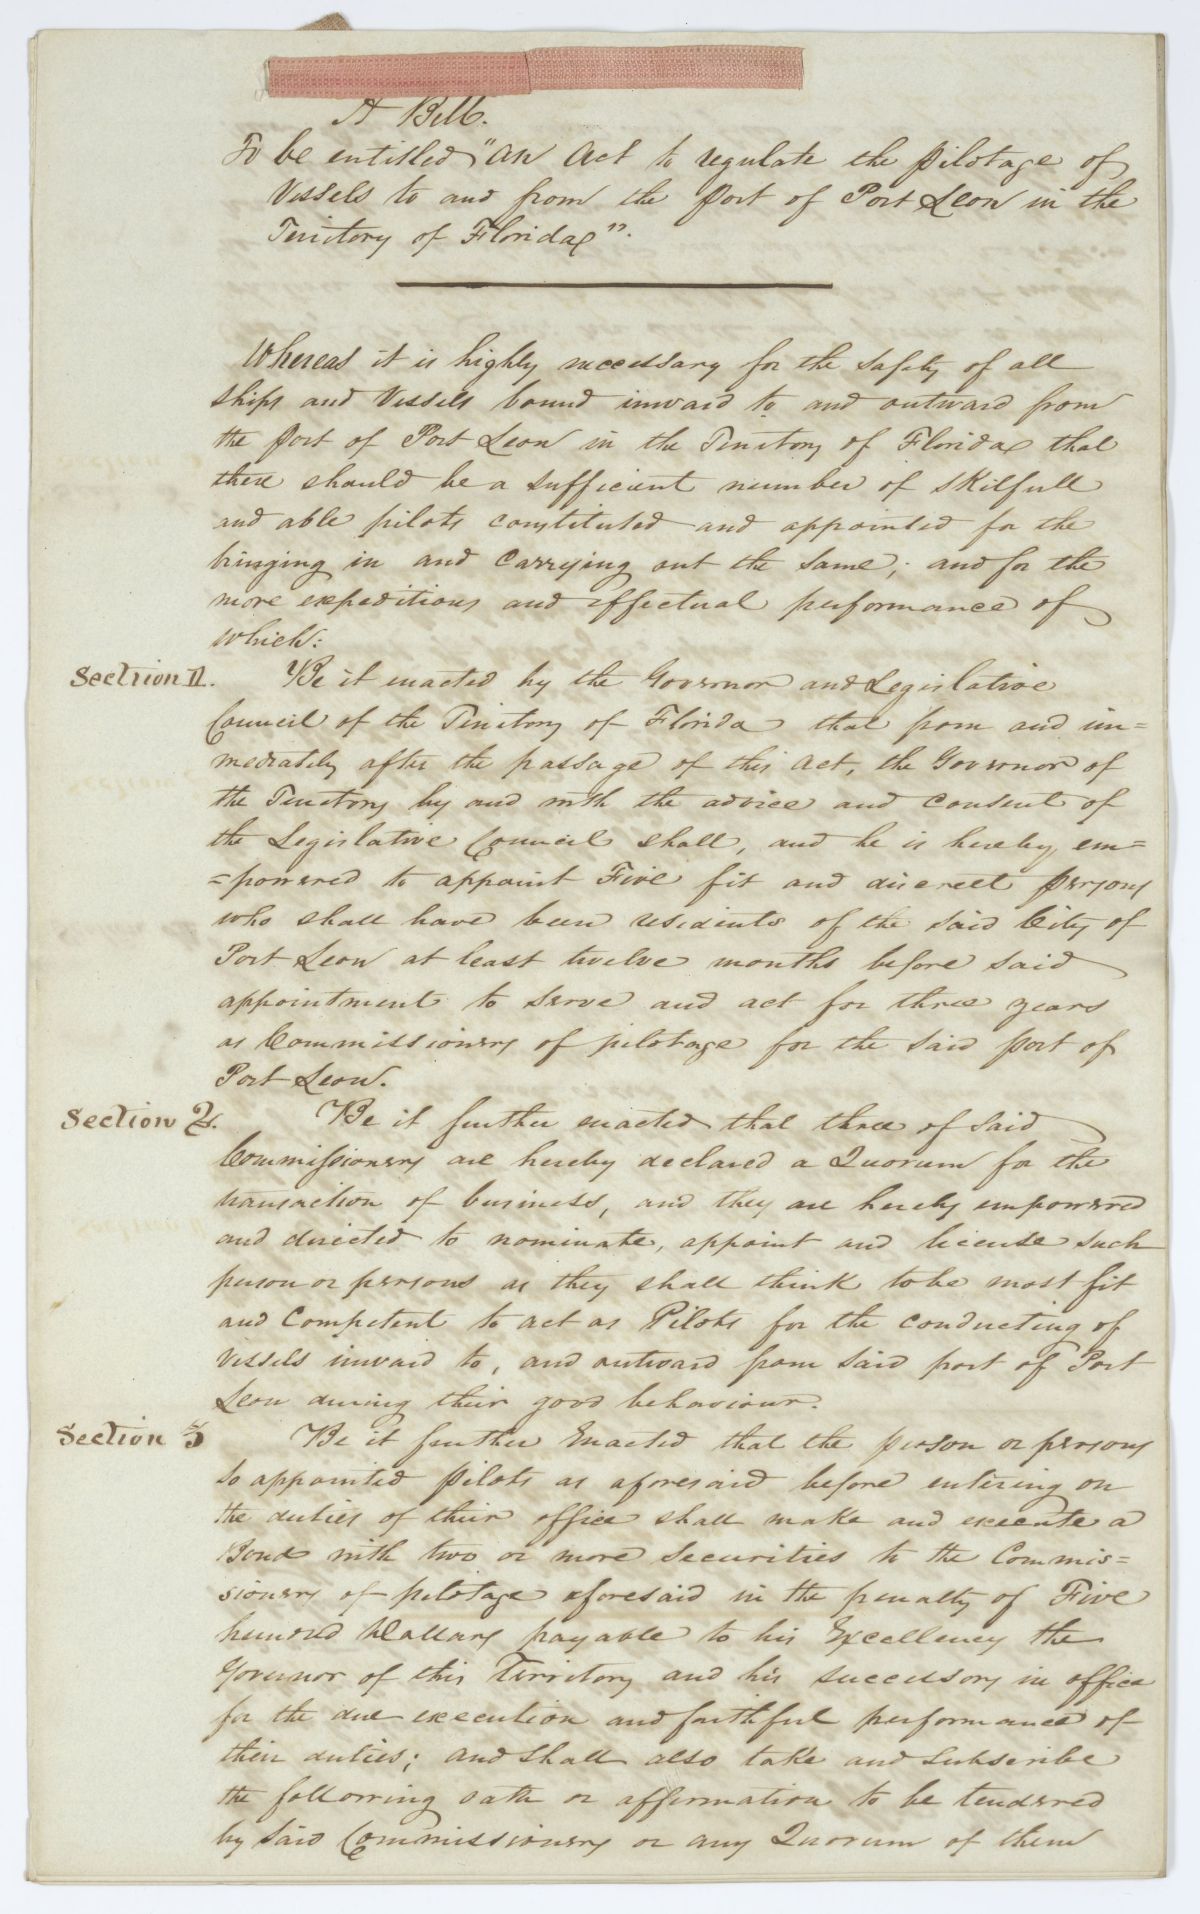 A Bill.
To be entitled "An Act to regulate the Pilotage of
Vessels to and from the Port of Port Leon in the
Territory of Florida".
Whereas it is highly necessary for the safety of all
ships and Vessels bound inward to and outward from
the Port of Port Leon in the Territory of Florida that
there should be a sufficient number of skilfull
and able pilots constituted and appointed for the
bringing in and carrying out the same; and for the
more expeditious and effectual performance of
which:
Section 1. Be it enacted by the Governor and Legislative
Council of the Territory of Florida that from and im=
mediately after the passage of this Act, the Governor of
the Territory by and with the advice and consent of
the Legislative Council shall, and he is hereby em=
=powered to appoint Five fit and discreet persons
who shall have been residents of the said City of
Port Leon at least twelve months before said
appointment to serve and act for three years
as Commissioners of pilotage for the said port of
Port Leon.
Section 2. Be it further enacted that three of said
Commissioners are hereby declared a Quorum for the
transaction of business, and they are hereby empowered
and directed to nominate, appoint and license such
person or persons as they shall think to be most fit
and Competent to act as Pilots for the conducting of
vessels inward to, and outward from said port of Port
Leon during their good behaviour.
Section 3 Be it further Enacted that the person or persons
so appointed Pilots as aforesaid before entering on
the duties of their office shall make and execute a
Bond with two or more securities to the Commis=
sioners of pilotage aforesaid in the penalty of Five
hundred Dollars payable to his Excellency the
Governor of this Territory and his successors in office
for the due execution and faithful performance of
their duties; and shall also take and subscribe
the following oath or affirmation to be tendered
by said Commissioners or any Quorum of them